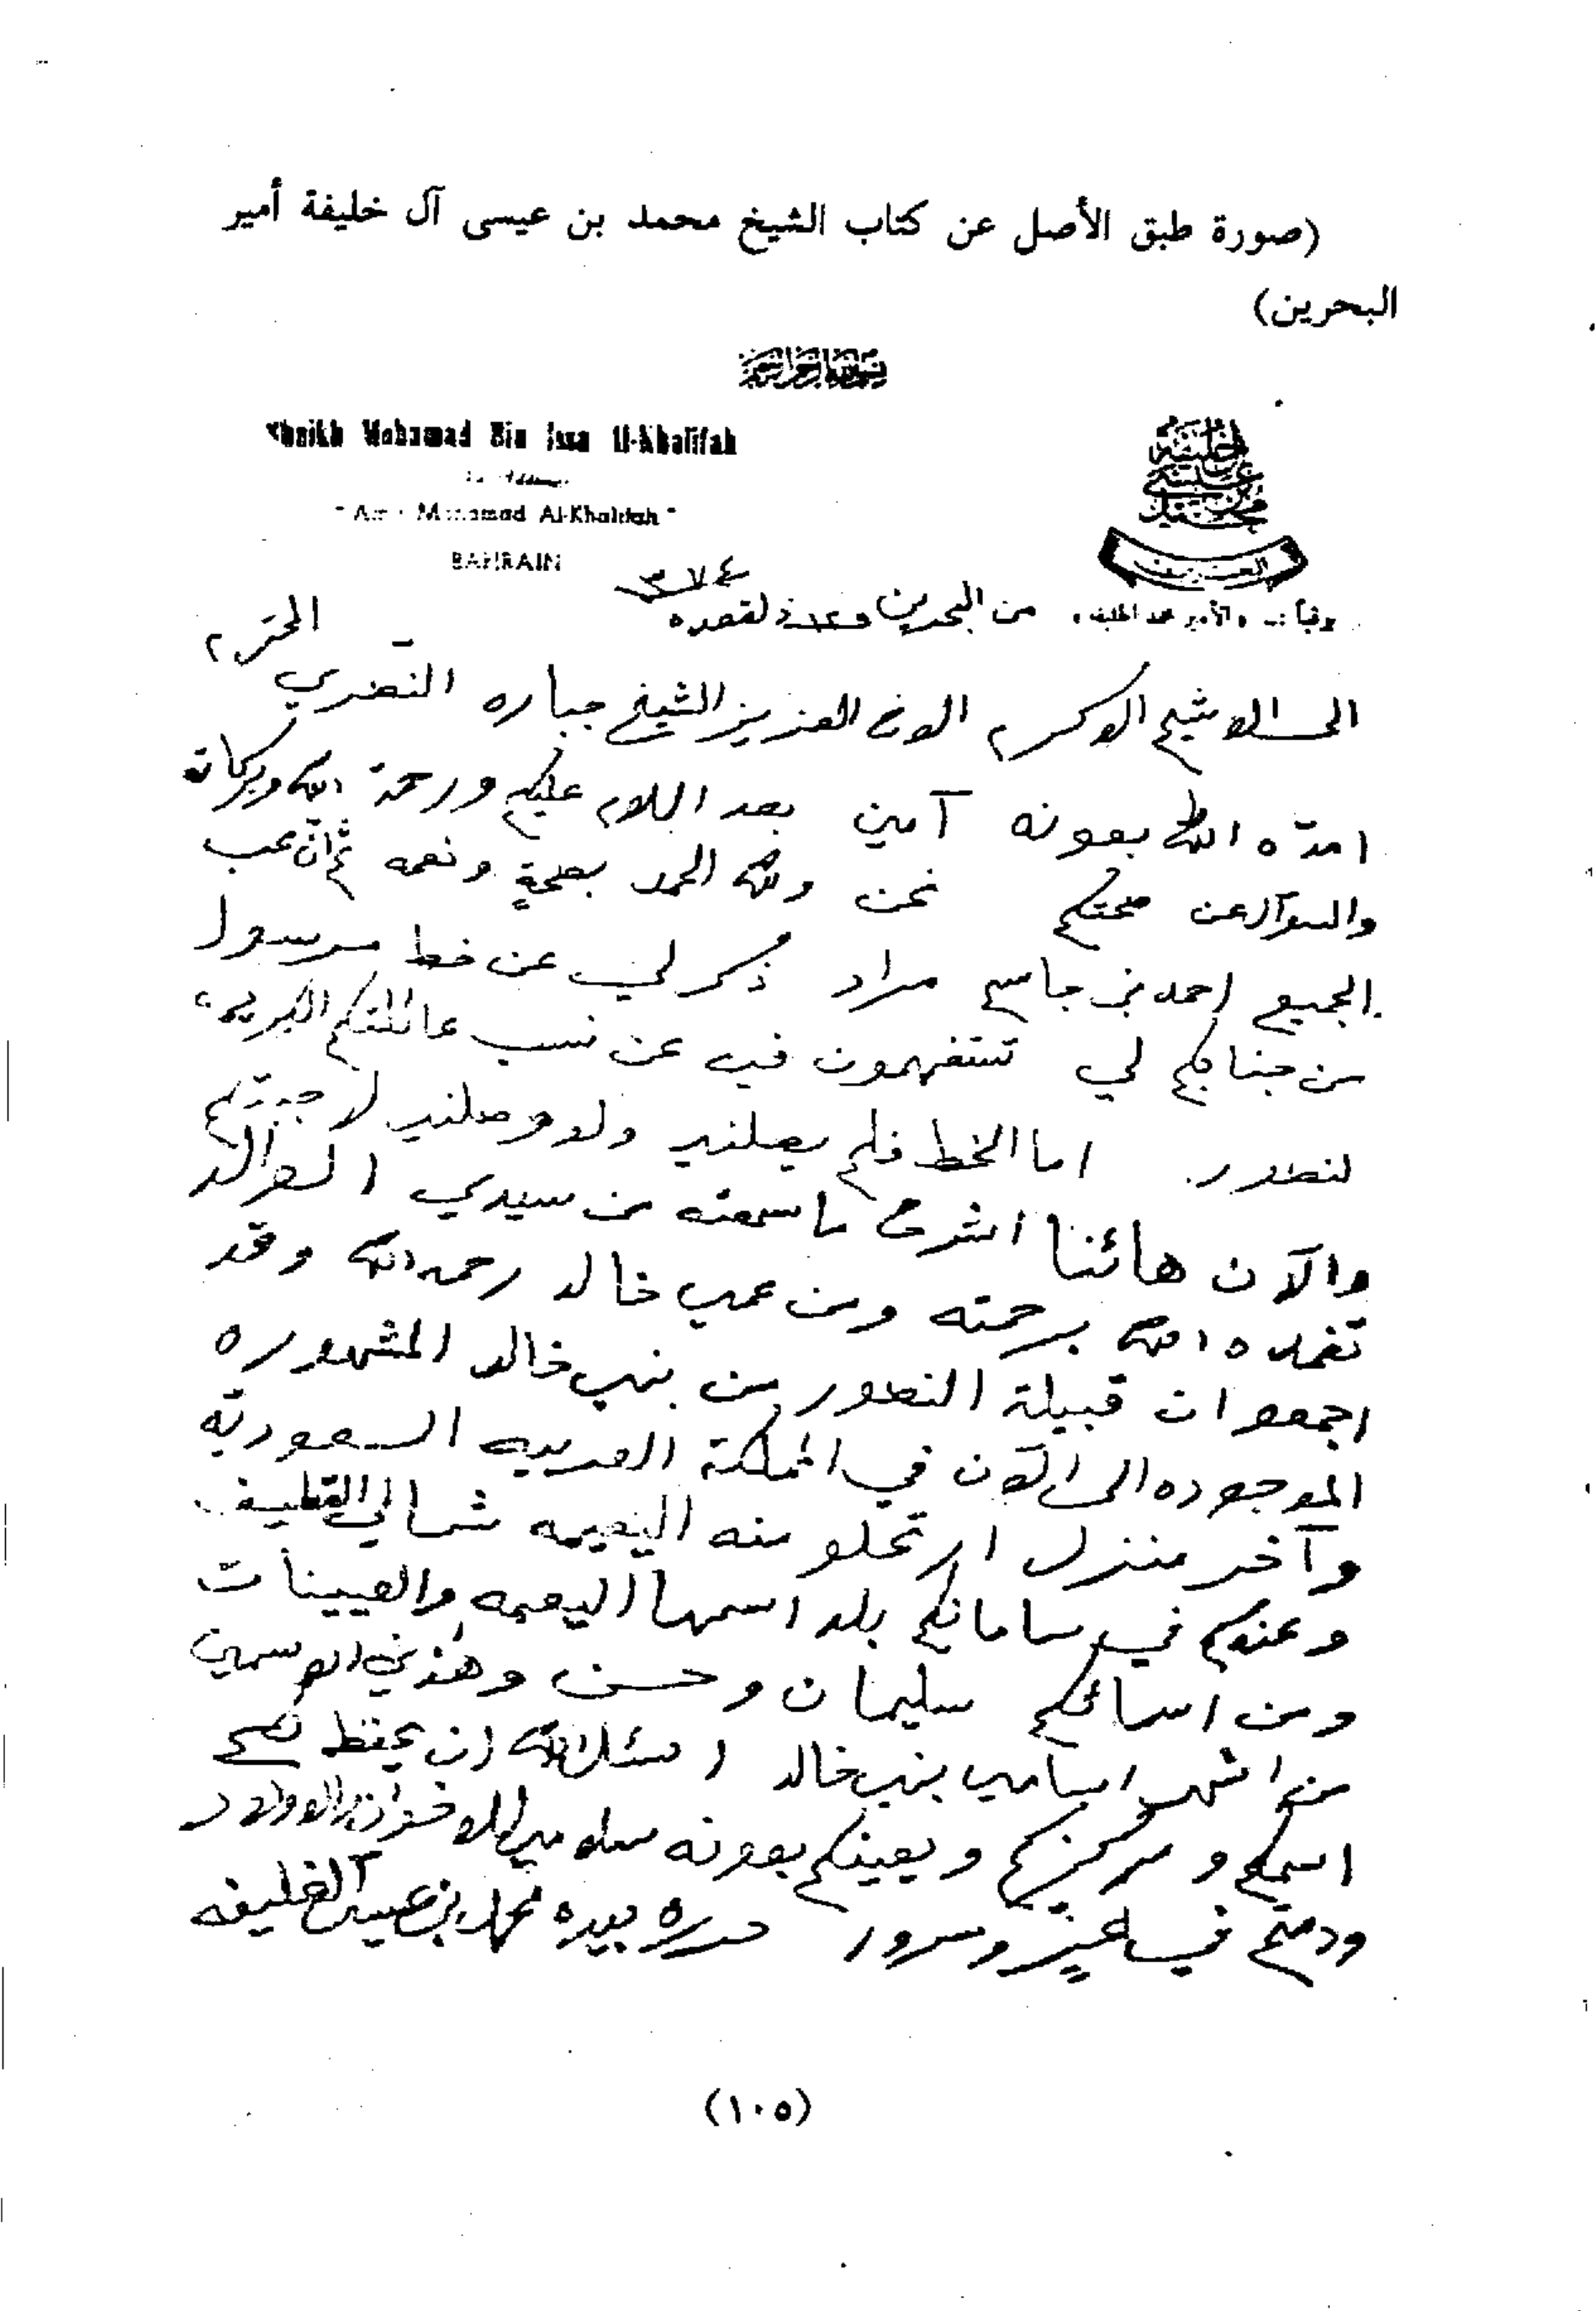 (صورة طبق الأصل عن كتاب الشيخ محمد بن عيسى آل خليفة أمير
البحرين)
Shaikh Mohamad Bin Issa Al-Khalifah
Mohamad Al-Khalifah"
BAHRAIN
٣٧٤
من البحرين القعده
المحترم
الى الاشيم الاكرم الاخ العزيز الشيخ جباره النصري
امدّه الله بعونه آمين بعد السلام عليكم ورحمة الله وبركاته
والسوآل عن صحتكم نحن ولله الحمد بصحةٍ ونعمه ثم ان محب
الجميع احمد بن جاسم مراد ذكر لي عن خط مرسول
من جنابكم لي تستفهمون فيه عن نسب عائلتكم الكريمه
لنصور. اما الخط فلم يصلني ولو وصلني لاجبتكم
والآن هائنا اشرح ما سمعته من سيدي الوالد
تغمده الله برحمته ومن عمي خالد رحمه الله وقد
اجمعو ان قبيلة النصور من بني خالد المشهوره
الموجوده الى الآن في المملكة العربيه السعوديّه
وآخر منزل ارتحلو منه النعيمه شمالي القطيف
وعندكم في سامانكم بلد اسمها اليعيمه والعيينات
ومن اسمائكم سليمان وحسن وهذين الاسمين
من اشهر اسامي بني خالد اسئل الله ان يحفظ لكم
اسمكم ومركزكم ويعينكم بعونه سلامي للاخوان والاولاد
ودمتم في عزٍ وسرور حرره بيده محمد بن عيسى آل خليفه
(١٠٥)